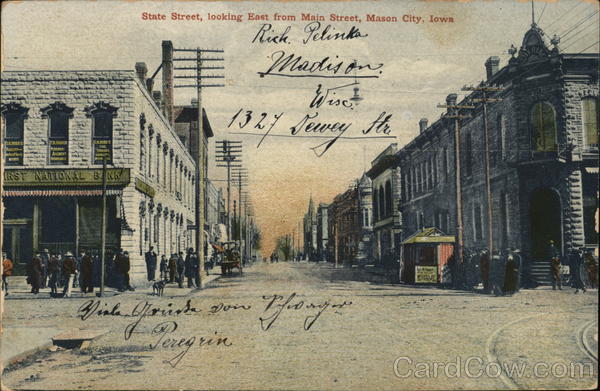 State Street, looking East from Main Street, Mason City, Iowa
Rich. Pelinka
Madison.
Wisc.
1327 Dewey Str.
FIRST NATIONAL BANK
Viele Grüße von Schwager
Peregrin
CardCow.com